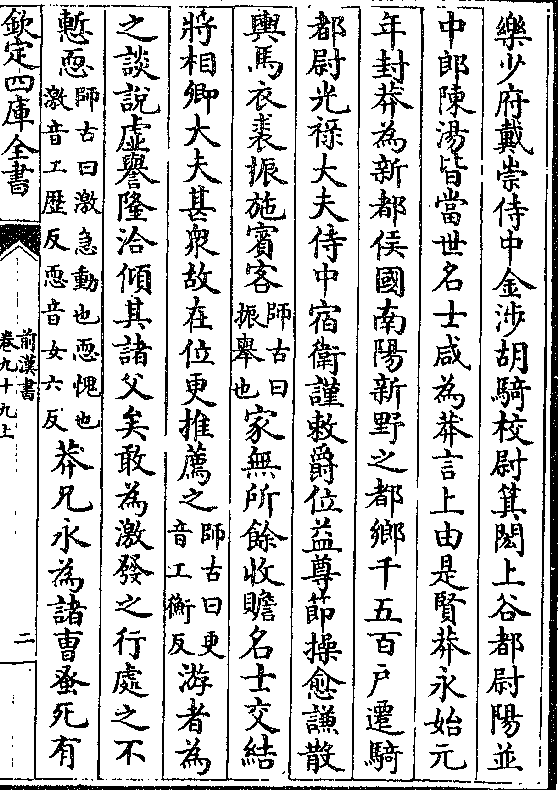 樂少府戴崇侍中金涉胡騎校尉箕閎上谷都尉陽並
中郎陳湯皆當世名士咸為莽言上由是賢莽永始元
年封莽為新都侯國南陽新野之都鄉千五百户遷騎
都尉光祿大夫侍中宿衛謹敕爵位益尊節操愈謙散
輿馬衣裘振施賓客師古曰振舉也家無所餘收贍名士交結
將相卿大夫甚衆故在位更推薦之師古曰更音工衡反游者為
之談說虛譽隆洽傾其諸父矣敢為激發之行處之不
慙恧師古曰激急動也恧愧也激音工歷反恧音女六反莽兄永為諸曹蚤死有
欽定四庫全書
前漢書
卷九十九上
二